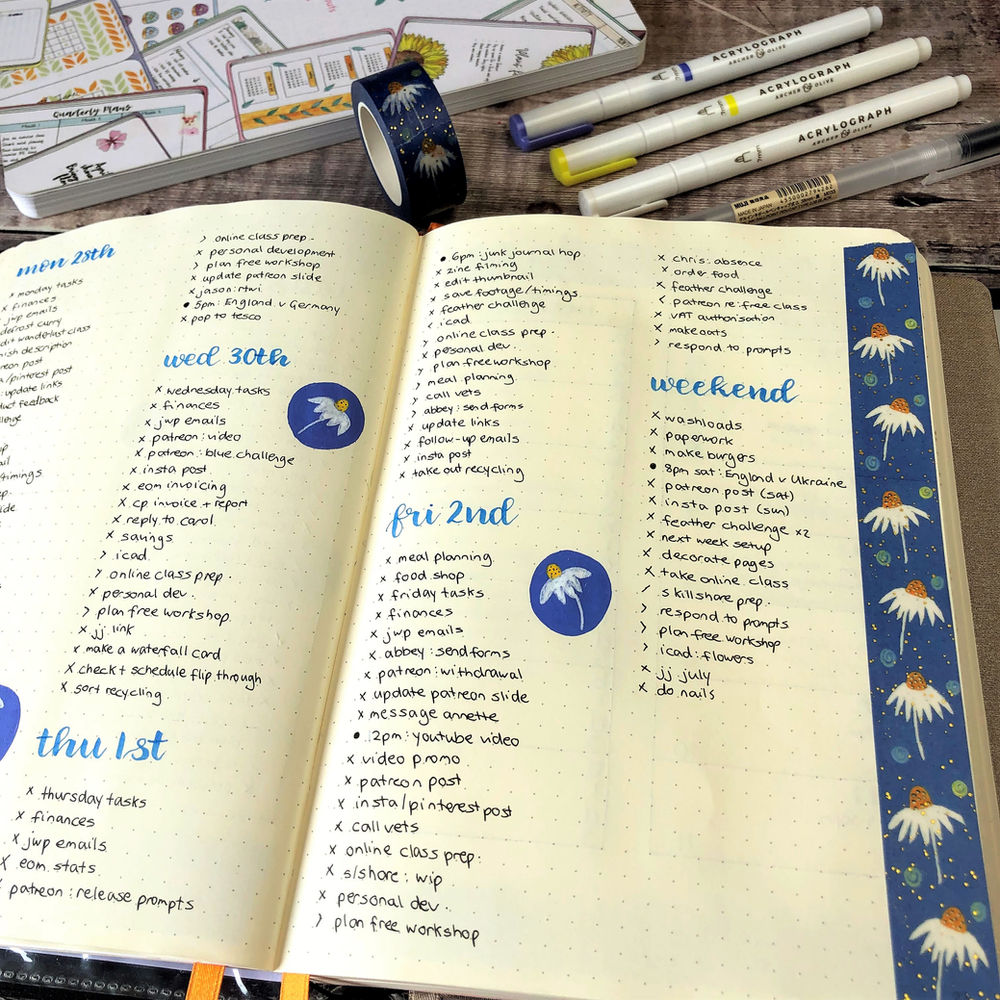 Quarterly Plans
ACRYLOGRAPH
ARCHER & OLIVE
ACRYLOGRAPH
ARCHER & OLIVE
ACRYLOGRAPH
ARCHER & OLIVE
MUJI
MADE IN JAPAN
mon 28th
x monday tasks
x finances
x jwp emails
defrost curry
edit wanderlust class
description
post
/pinterest post
update links
feedback
timings
> online class prep.
x personal development
> plan free workshop
x update patreon slide
x jason: rtwi
• 5pm: England v Germany
x pop to tesco
wed 30th
x wednesday tasks
x finances
x jwp emails
x patreon: video
x patreon: blue challenge
x insta post
x eom invoicing
x cp invoice + report
x reply to carol
x savings
> icad
> online class prep.
x personal dev.
> plan free workshop
x jj link
x make a waterfall card
x check + schedule flip through
x sort recycling
thu 1st
x thursday tasks
x finances
x jwp emails
x eom stats
patreon: release prompts
• 6pm: junk journal hop
x zine filming
x edit thumbnail
x save footage/timings
x feather challenge
< icad
> online class prep.
x personal dev.
> plan free workshop
> meal planning
> call vets
> abbey: send forms
x update links
x follow-up emails
x insta post
x take out recycling
fri 2nd
x meal planning
x food shop
x friday tasks
x finances
x jwp emails
x abbey: send forms
x patreon: withdrawal
x update patreon slide
x message annette
• 2pm: youtube video
x video promo
x patreon post
x insta/pinterest post
x call vets
x online class prep:
x s/share: wip
x personal dev.
> plan free workshop
x chris: absence
x order food
x feather challenge
< patreon re: free class
x VAT authorisation
x make oats
> respond to prompts
weekend
x washloads
x paperwork
x make burgers
• 8pm sat: England v Ukraine
x patreon post (sat)
x insta post (sun)
x feather challenge x2
x next week setup
x decorate pages
x take online class
/ skillshare prep.
> respond to prompts
> plan free workshop
> icad: flowers
x jj july
x do nails